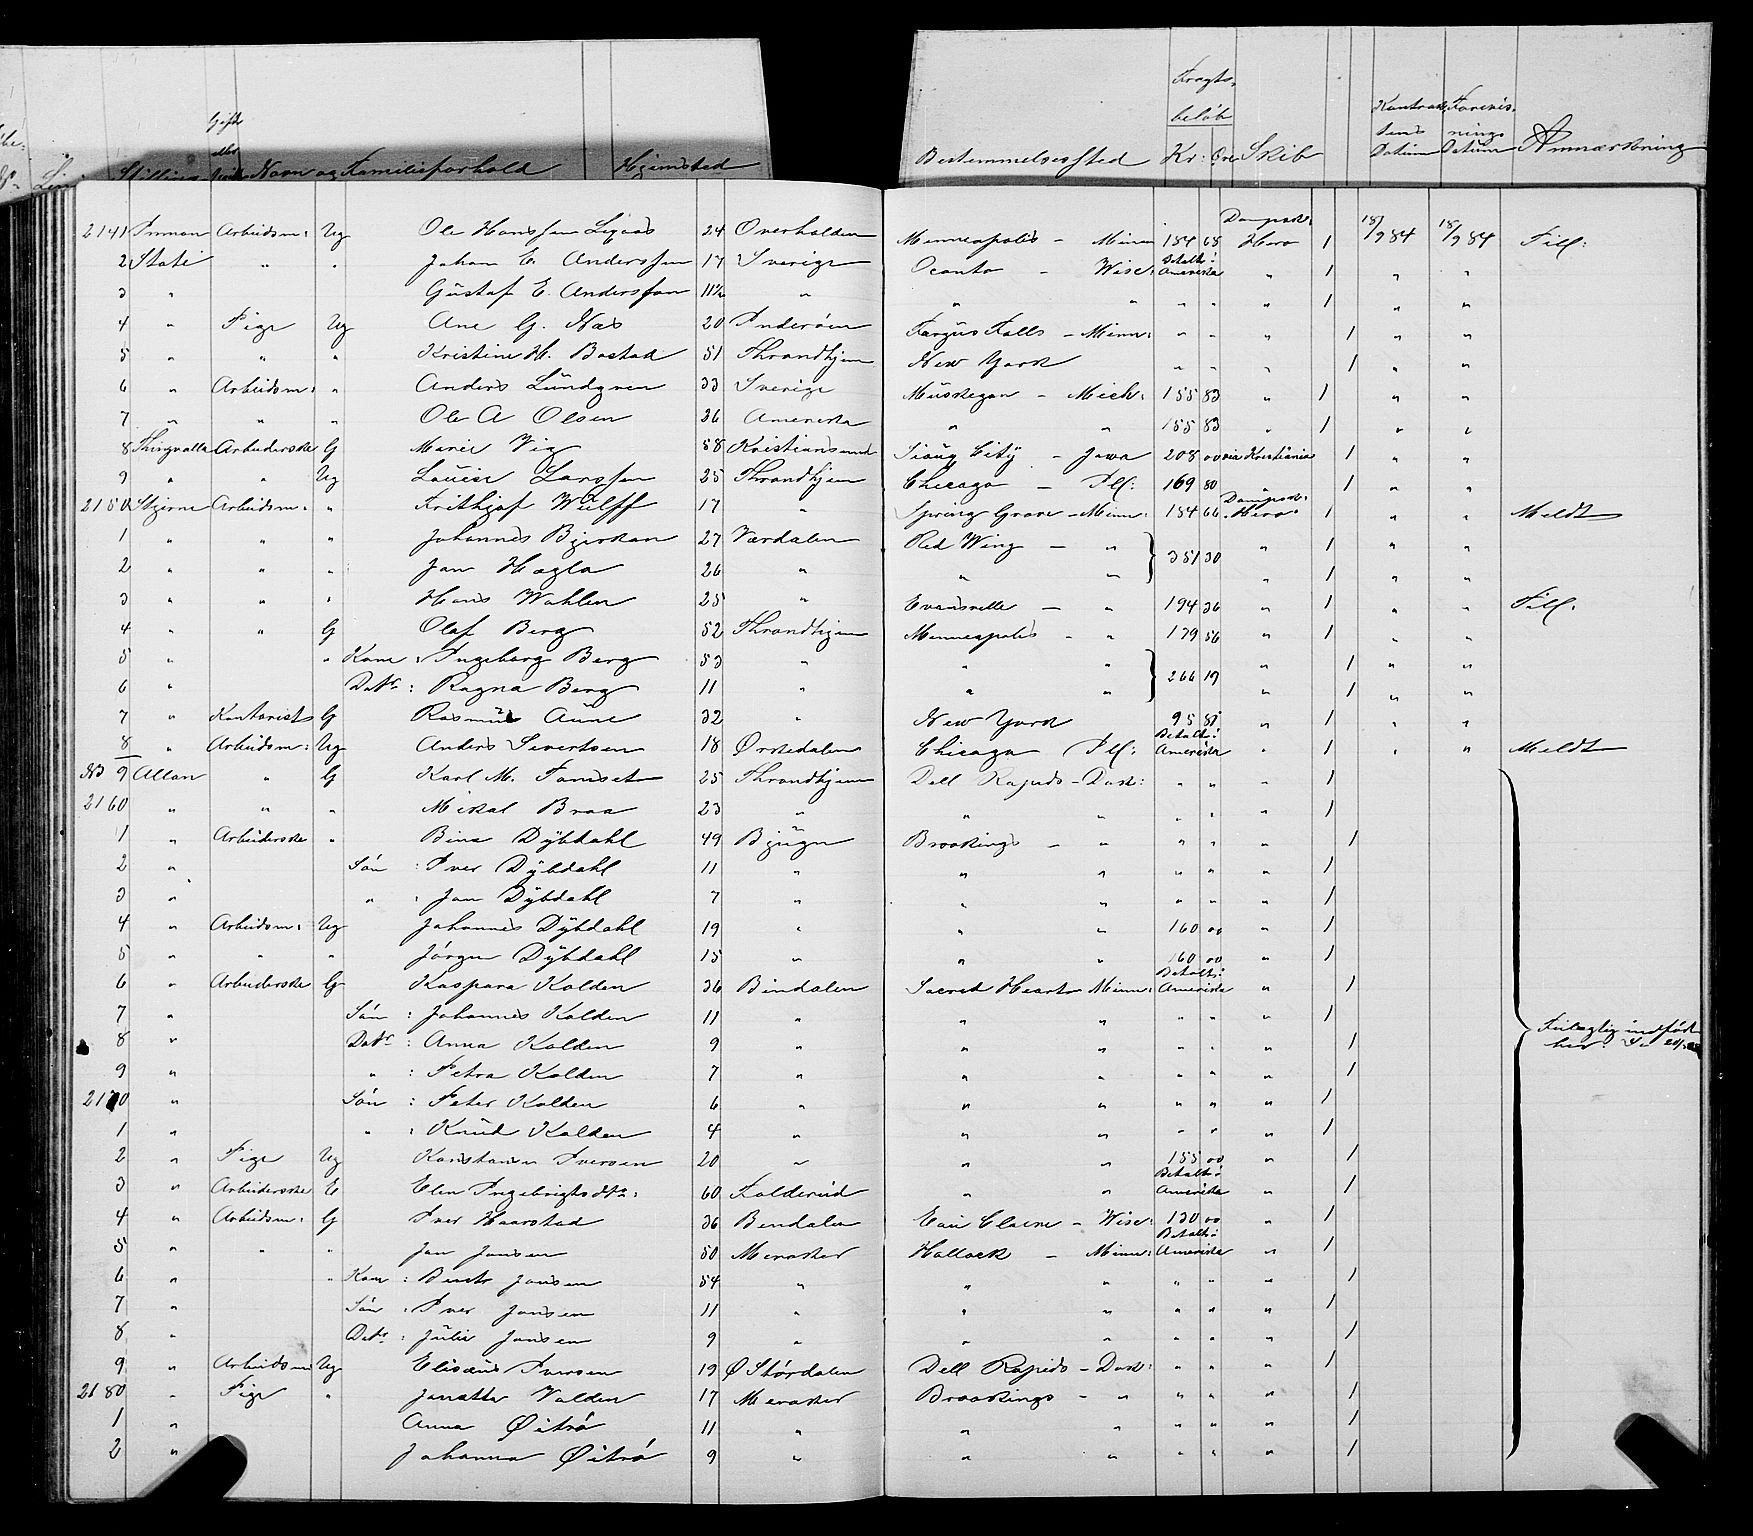 Gift eller Navn og Familieforhold Hjemsted Bestemmelsessted Fragtbeløb Kr: Øre Skib Datum Datum Anmærkning
2141 Inman Arbeidsm: Ug Ole Hanssen 24 Overhalden Minneapolis - Minn 184 68 Dampsk: Hero 1 18/9 84 18/9 84 Till:
2 State " " Johan E. Anderssen 17 Sverige Oconto - Wisc: Betalt: Amerika " 1 " "
3 " Gustaf E. Andersson 11½ " " " " " " 1 " "
4 " Pige Ug Ane G. Næs 20 Inderøen Fergus Falls - Minn: " " " 1 " "
5 " " " Kristine H. Bostad 51 Throndhjem New York " " " 1 " "
6 " Arbeidsm: " Anders Lundgren 33 Sverige Muskegon - Mich: 155 83 " 1 " "
7 " " " Ole A Olsen 26 Amerika " " 155 83 " 1 " "
8 Thingvalla Arbeiderske G Marie Vig 58 Kristiansund Sioux City - Jowa 208 00 via Kristiania 1 " "
9 " " Ug Louise Larssen 25 Throndhjem Chicago - Ill: 169 80 " 1 " "
2150 Stjerne Arbeidsm: " Frithjof Wulff 17 " Spring Grove - Minn: 184 66 Dampsk: Hero 1 " " Meldt
1 " " " Johannes Bjerkan 27 Værdalen Red Wing - " } 351 30 " 1 " "
2 " " " Jon Hagla 26 " " " " 1 " "
3 " " " Hans Wohlen 25 " Evansville - " 194 36 " 1 " " Till:
4 " " G Olaf Berg 52 Throndhjem Minneapolis - " 179 56 " 1 " "
5 " " Kone : Ingeborg Berg 53 " " " } 266 19 " 1 " "
6 " Datr : Ragna Berg 11 " " " " 1 " "
7 " Kontorist G Rasmus Aune 32 " New York 95 81 " 1 " "
8 " Arbeidsm: Ug Anders Sivertsen 18 Ørstedalen Chicago Ill: Betalt: Amerika " 1 " " Meldt
NB 9 Allan " G Karl M. Tomset 25 Throndhjem Dell Rapids - Dak: " " " 1
2160 " " " Mikal Braa 23 " " " " " " 1
1 " Arbeiderske " Bina Dybdahl 49 Bjugn Brookings - " " " " 1
2 " Søn : Iver Dybdahl 11 " " " " " " 1
3 " " : Jon Dybdahl 7 " " " " " " 1
4 " Arbeidsm: Ug Johannes Dybdahl 19 " " " 160 00 " 1
5 " " " Jørgen Dybdahl 15 " " " 160 00 " 1
6 " Arbeiderske G Kaspara Kolden 36 Bindalen Sacred Heart Minn: Betalt: Amerika " 1
7 " Søn : Johannes Kolden 11 " " " " " " 1
8 " Datr : Anna Kolden 9 " " " " " " 1 Feilagtig indført her.
9 " " : Petra Kolden 7 " " " " " " 1
2170 " Søn : Peter Kolden 6 " " " " " " 1
1 " " : Knud Kolden 4 " " " " " " 1
2 " Pige Ug Konstanse Iversen 20 " " " 155 00 " 1
3 " Arbeiderske E Elen Ingebrigtsdtr: 60 Foldereid " " Betalt: Amerika " 1
4 " Arbeidsm: G Iver Haarstad 36 Bindalen Eau Claire - Wisc: 130 00 " 1
5 " " " Jon Jonsen 50 Meraker Hallock - Minn: Betalt: Amerika " 1
6 " " Kone : Berit Jonsen 54 " " " " " " 1
7 " Søn : Iver Jonsen 11 " " " " " " 1
8 " Datr : Julie Jonsen 9 " " " " " " 1
9 " Arbeidsm Ug Elisæus Iversen 19 Ø Størdalen Dell Rapids - Dak: " " " 1
2180 " Pige " Jonetta Volden 17 Meraker Brookings - " " " " 1
1 " Anna Øitrø 11 " " " " " " 1
2 " Johanna Øitrø 9 " " " " " " 1